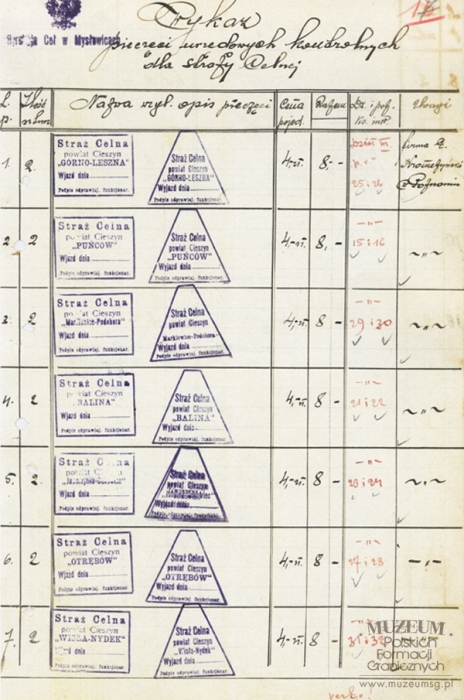 11
Dyrekcja Ceł w Mysłowicach
Wykaz
pieczęci urzędowych kontrolnych
dla straży Celnej
L. p. Ilość Nazwa wzgl. opis pieczęci Cena pojed. Razem Uwagi
1. 2 4,- zł. 8,-
Straż Celna
powiat Cieszyn
„GÓRNO-LESZNA"
Wjazd dnia
Podpis odprawiaj. funkcjonar.
Straż Celna
powiat Cieszyn
„GÓRNO-LESZNA"
Wyjazd dnia
Podpis odprawiaj. funkcjonar.
25 i 26
firma
2. 2 4,- zł. 8,-
Straż Celna
powiat Cieszyn
„PUŃCÓW"
Wjazd dnia
Podpis odprawiaj. funkcjonar.
Straż Celna
powiat Cieszyn
„PUŃCÓW"
Wyjazd dnia
Podpis odprawiaj. funkcjonar.
-„-
15 i 16
~„~
3. 2 4,- zł. 8 -
Straż Celna
powiat Cieszyn
Wjazd dnia
Podpis odprawiaj. funkcjonar.
Straż Celna
powiat Cieszyn
Marklowice-Podobora
Wyjazd dnia
Podpis odprawiaj. funkcjonar.
-„-
29 i 30
~„~
4. 2 4,- zł. 8 -
Straż Celna
powiat Cieszyn
„BALINA"
Wjazd dnia
Podpis odprawiaj. funkcjonar.
Straż Celna
powiat Cieszyn
„BALINA"
Wyjazd dnia
Podpis odprawiaj. funkcjonar.
-„-
21 i 22
~„~
5. 2 4,- zł. 8 -
Straż Celna
powiat Cieszyn
Wjazd dnia
Podpis odprawiaj. funkcjonar.
Straż Celna
powiat Cieszyn
Wyjazd dnia
Podpis odprawiaj. funkcjonar.
-„-
~„~
6. 2 4,- zł. 8 -
Straż Celna
powiat Cieszyn
„OTRĘBÓW"
Wjazd dnia
Podpis odprawiaj. funkcjonar.
Straż Celna
powiat Cieszyn
„OTRĘBÓW"
Wyjazd dnia
Podpis odprawiaj. funkcjonar.
-„-
27 i 28
-„-
7. 2 4,- zł. 8 -
Straż Celna
powiat Cieszyn
„WISŁA-NYDEK"
Wjazd dnia
Podpis odprawiaj. funkcjonar.
Straż Celna
powiat Cieszyn
„Wisła-Nydek"
Wyjazd dnia
Podpis odprawiaj. funkcjonar.
31 i 32
MUZEUM
Polskich
Formacji
Granicznych
www.muzeumsg.pl